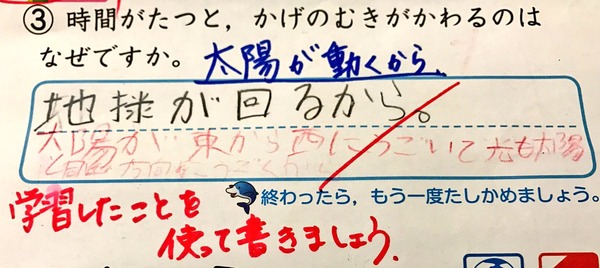 ③ 時間がたつと，かげのむきがかわるのは
なぜですか。
太陽が動くから、
地球が回るから。
太陽が東から西にうごいて光も太陽
と同じ方向にうごくから
終わったら，もう一度たしかめましょう。
学習したことを
使って書きましょう。